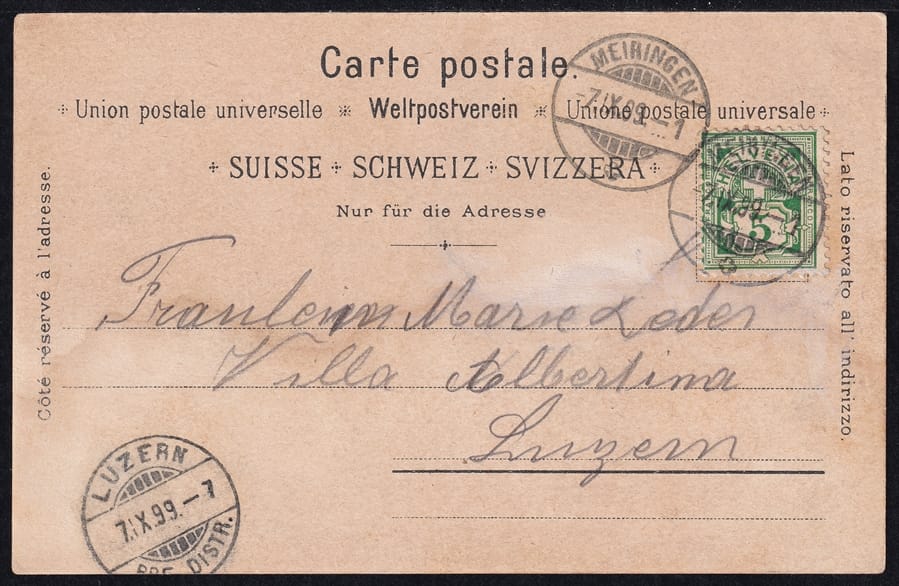 Carte postale.
Union postale universelle * Weltpostverein * Unione postale universale
SUISSE + SCHWEIZ + SVIZZERA
Nur für die Adresse
Côté réservé à l'adresse.
Lato riservato all' indirizzo.
MEIRINGEN
-7.IX.99.-1
HELVETIA
5
Fraulein Marie Leder
Villa Albertina
Luzern
LUZERN
7.IX.99.-7
DISTR.